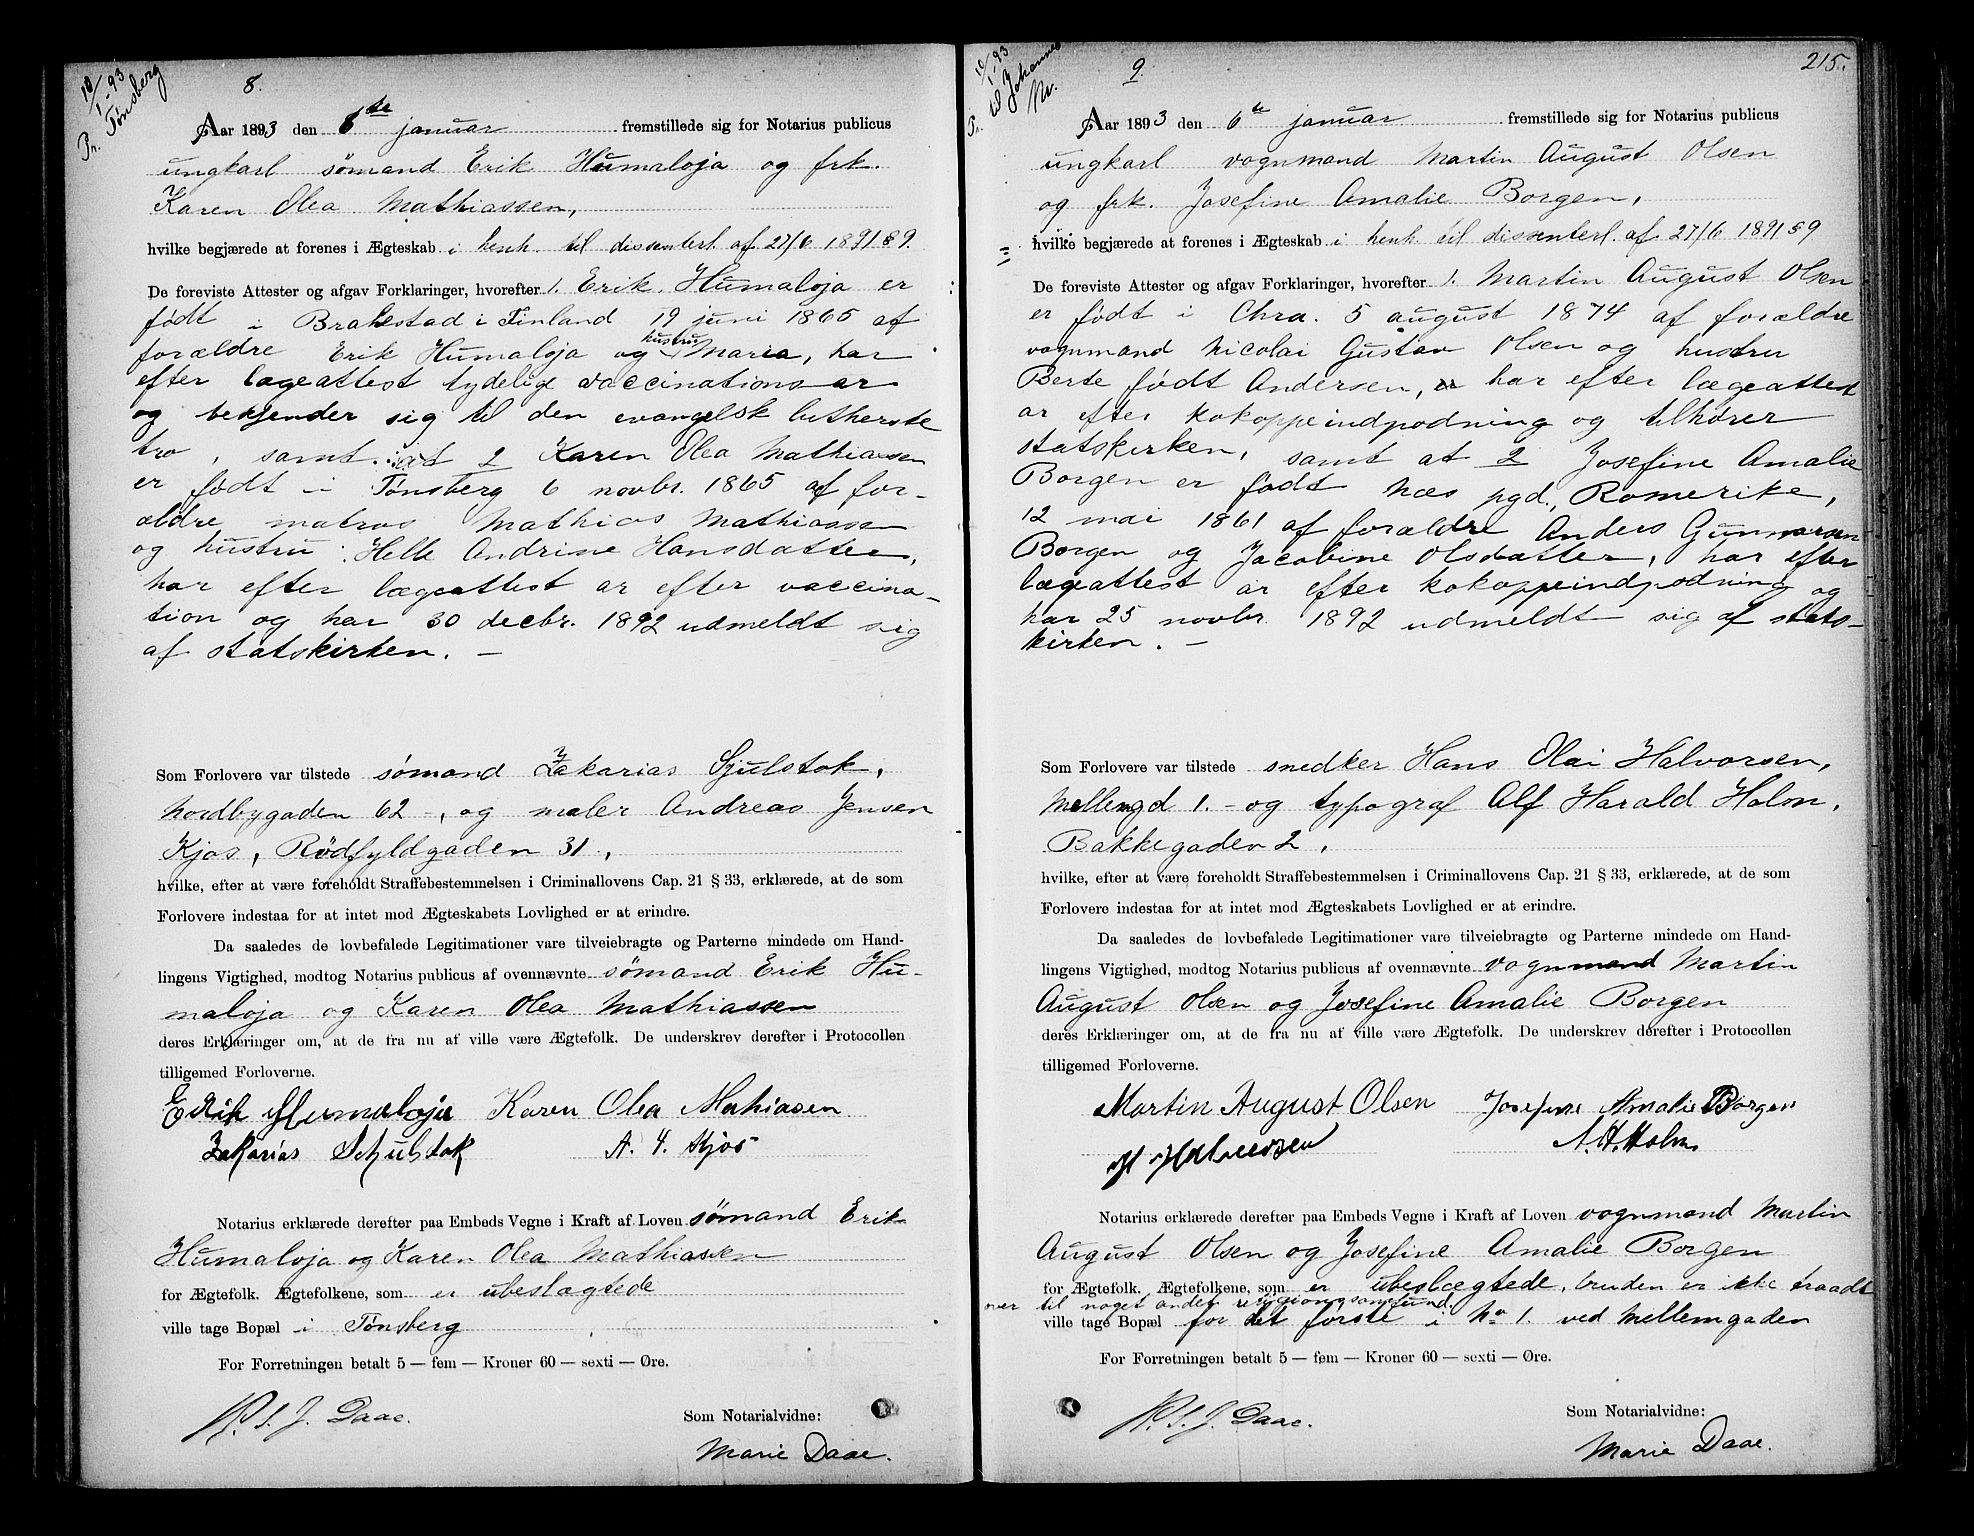 10/1-93
Pr. Tønsberg
8.
Aar 1893 den 6te januar fremstillede sig for Notarius publicus
ungkarl sømand Erik Humaloja og frk.
Karen Olea Mathiassen,
hvilke begjærede at forenes i Ægteskab i henh. til dissenterl. af 27/6 1891 § 9.
De foreviste Attester og afgav Forklaringer, hvorefter 1. Erik Humaloja er
født i Brahestad i Finland 19 juni 1865 af
forældre Erik Humaloja og hustru Maria, har
efter lægeattest tydelige vaccinationsar
og bekjender sig til den evangelsk lutherske
tro, samt at 2 Karen Olea Mathiassen
er født i Tønsberg 6 novbr. 1865 af for-
ældre matros Mathias Mathiassen
og hustru Helle Andrine Hansdatter,
har efter lægeattest ar efter vaccina-
tion og har 30 decbr. 1892 udmeldt sig
af statskirken. –
Som Forlovere var tilstede sømand Zakarias Sjulstok,
Nordbygaden 62 -, og maler Andreas Jensen
Kjos, Rødfyldgaden 31,
hvilke, efter at være foreholdt Straffebestemmelsen i Criminallovens Cap. 21 § 33, erklærede, at de som
Forlovere indestaa for at intet mod Ægteskabets Lovlighed er at erindre.
Da saaledes de lovbefalede Legitimationer vare tilveiebragte og Parterne mindede om Hand-
lingens Vigtighed, modtog Notarius publicus af ovennævnte sømand Erik Hu-
maloja og Karen Olea Mathiassen
deres Erklæringer om, at de fra nu af ville være Ægtefolk. De underskrev derefter i Protocollen
tilligemed Forloverne.
Erik Humaloja Karen Olea Mathiasen
Zakarias Schulstok A. J. Kjos
Notarius erklærede derefter paa Embeds Vegne i Kraft af Loven sømand Erik
Humaloja og Karen Olea Mathiassen
for Ægtefolk. Ægtefolkene, som er ubeslægtede
ville tage Bopæl i Tønsberg
For Forretningen betalt 5 — fem — Kroner 60 — sexti — Øre.
Daae.
Som Notarialvidne:
Marie Daae.
10/1-93
Pr. til Johannes
9.
215.
Aar 1893 den 6te januar fremstillede sig for Notarius publicus
ungkarl vognmand Martin August Olsen
og frk. Josefine Amalie Borgen,
hvilke begjærede at forenes i Ægteskab i henh. til dissenterl. af 27/6 1891 § 9
De foreviste Attester og afgav Forklaringer, hvorefter 1. Martin August Olsen
er født i Chra. 5 august 1874 af forældre
vognmand Nicolai Gustav Olsen og hustru
Berte født Andersen, har efter lægeattest
ar efter kokoppeindpodning og tilhører
statskirken, samt at 2 Josefine Amalie
Borgen er født Næs pgd., Romerike,
12 mai 1861 af forældre Anders Gunnarsen
Borgen og Jacobine Olsdatter, har efter
lægeattest ar efter kokoppeindpodning og
har 25 novbr. 1892 udmeldt sig af stats-
kirken. –
Som Forlovere var tilstede snedker Hans Olai Halvorsen,
Mellemgd 1. - og typograf Alf Harald Holm,
Bakkegaden 2,
hvilke, efter at være foreholdt Straffebestemmelsen i Criminallovens Cap. 21 § 33, erklærede, at de som
Forlovere indestaa for at intet mod Ægteskabets Lovlighed er at erindre.
Da saaledes de lovbefalede Legitimationer vare tilveiebragte og Parterne mindede om Hand-
lingens Vigtighed, modtog Notarius publicus af ovennævnte vognmand Martin
August Olsen og Josefine Amalie Borgen
deres Erklæringer om, at de fra nu af ville være Ægtefolk. De underskrev derefter i Protocollen
tilligemed Forloverne.
Martin August Olsen Josefine Amalie Borgen
H Halvorsen A. H. Holm
Notarius erklærede derefter paa Embeds Vegne i Kraft af Loven vognmand Martin
August Olsen og Josefine Amalie Borgen
for Ægtefolk. Ægtefolkene, som er ubeslægtede, bruden er ikke traadt
over til noget andet religionssamfund.
ville tage Bopæl for det første i No 1. ved Mellemgaden
For Forretningen betalt 5 — fem — Kroner 60 — sexti — Øre.
Daae.
Som Notarialvidne:
Marie Daae.